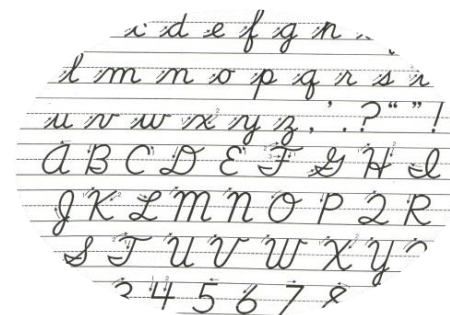 c d e f g h
l m n o p q r s t
u v w x y z , ' . ? “ ” !
A B C D E F G H I
J K L M N O P Q R
S T U V W X Y
3 4 5 6 7 8